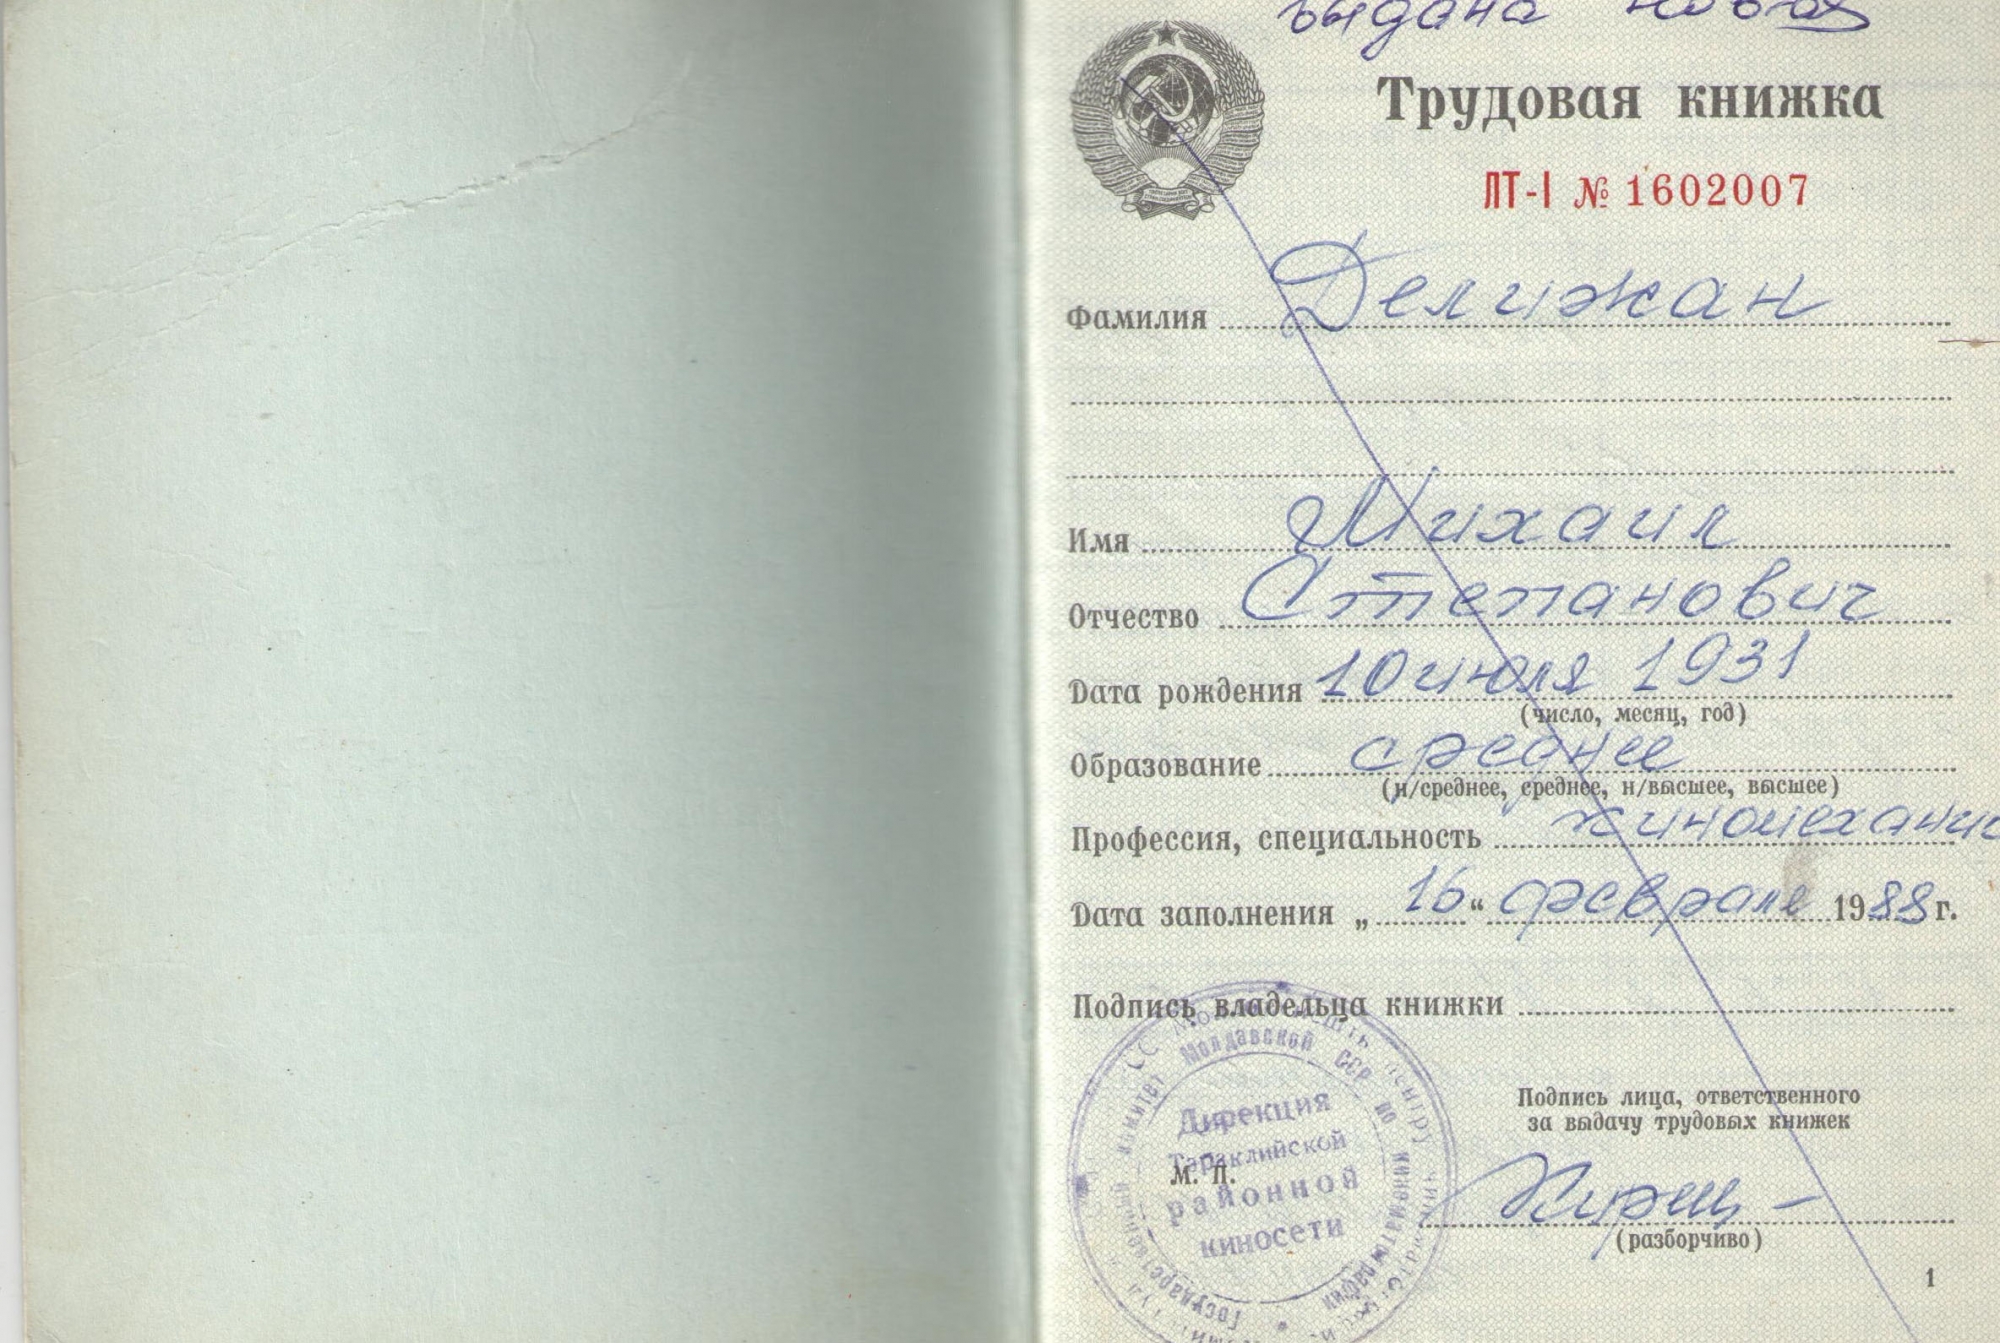 выдана новая
Трудовая книжка
ЛТ-I № 1602007
Фамилия Делижан
Имя Михаил
Отчество Степанович
Дата рождения 10 июля 1931
(число, месяц, год)
Образование среднее
(н/среднее, среднее, н/высшее, высшее)
Профессия, специальность киномеханик
Дата заполнения „16“ февраля 1988 г.
Подпись владельца книжки
Молдавской ССР по кинематографии
Государственный комитет
Дирекция
Тараклийской
районной
киносети
М. П.
Подпись лица, ответственного
за выдачу трудовых книжек
(разборчиво)
1